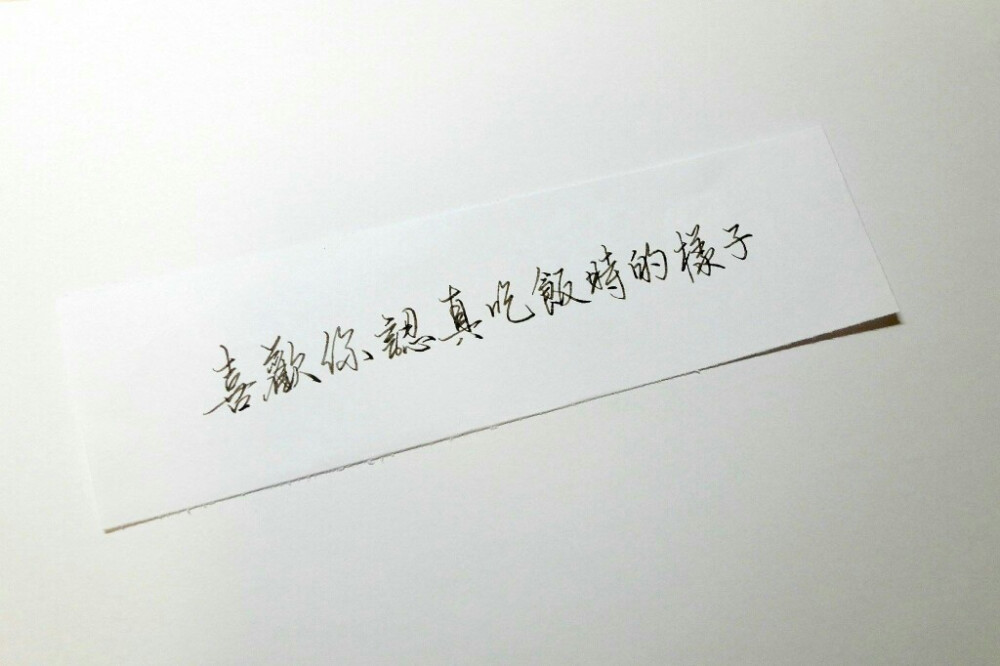 喜歡你認真吃飯時的樣子